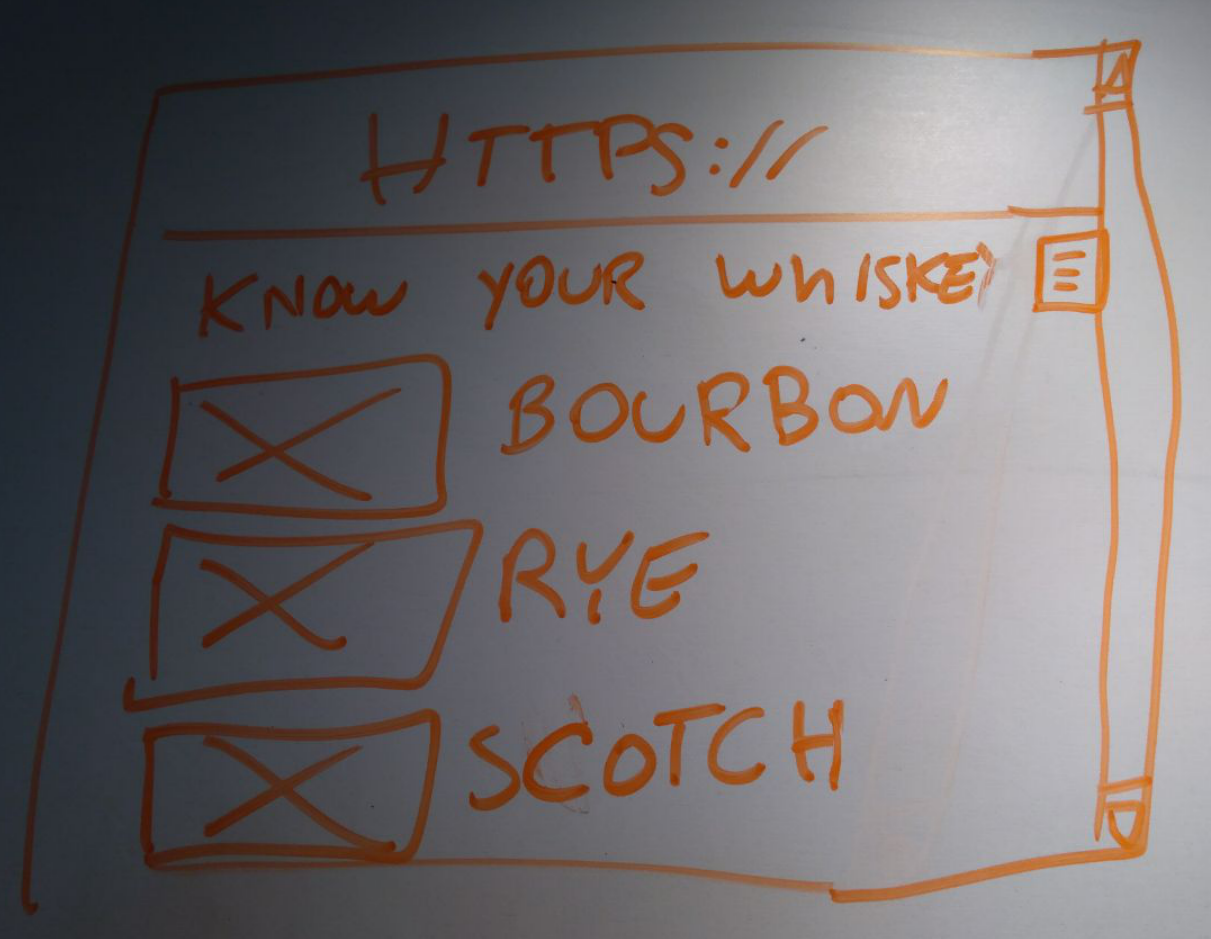 HTTPS://
KNOW YOUR WHISKEY
BOURBON
RYE
SCOTCH